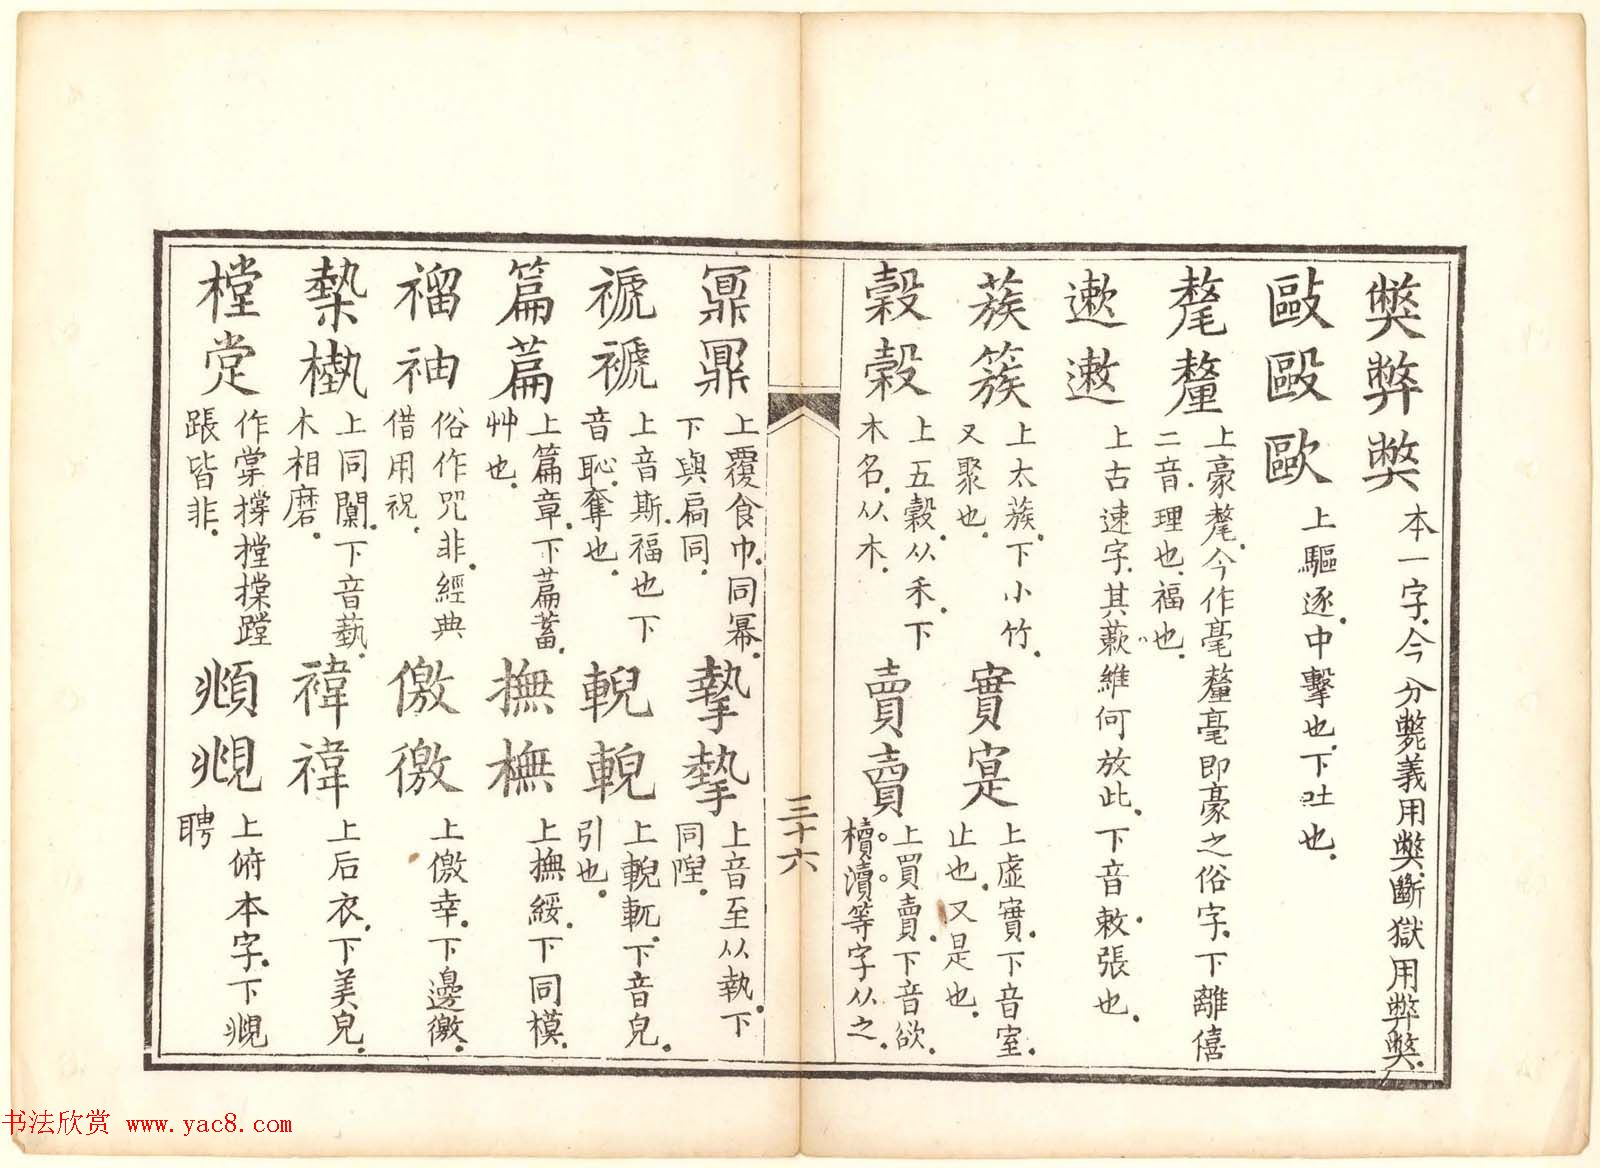 獘弊弊 本一字今分斃義用獘斷獄用弊獘
敺毆歐 上驅逐中擊也下吐也
氂釐 上豪氂今作毫釐毫即豪之俗字下離僖
二音理也福也
遬遫 上古速字其蔌維何放此下音敕張也
蔟簇 上太蔟下小竹
又聚也
實寔 上虛實下音室
止也又是也
穀榖 上五穀从禾下
木名从木
賣𧶠 上買賣下音欲
櫝瀆等字从之
三十六
鼏鼏 上覆食巾同冪
下與扃同
摯摰 上音至从執下
同隉
禠褫 上音斯福也下
音恥奪也
輗輗 上輗軏下音皃
引也
篇萹 上篇章下萹蓄
艸也
撫橅 上撫綏下同模
禂袖 俗作咒非經典
借用祝
儌徼 上儌幸下邊徼
槷槸 上同闑下音藝
木相磨
褘禕 上后衣下美皃
樘定
作掌撐摚㨃蹚
䠆皆非
頫覜 上俯本字下覜
聘
书法欣赏 www.yac8.com